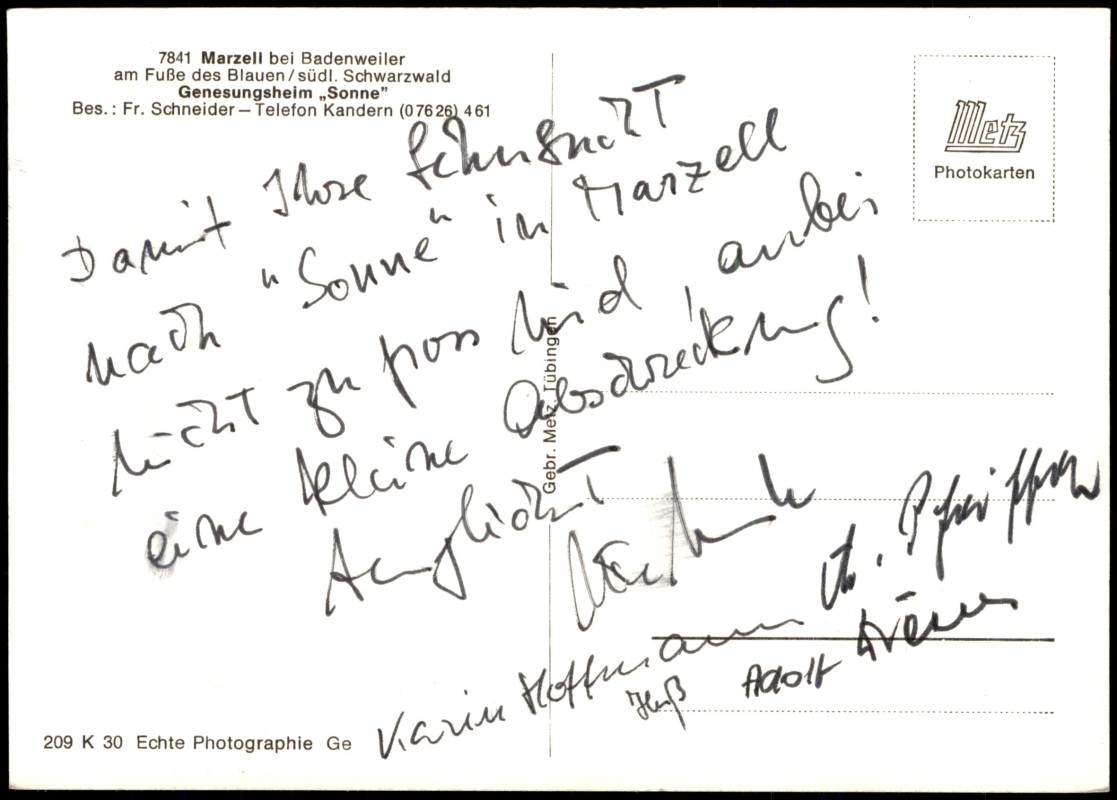 7841 Marzell bei Badenweiler
am Fuße des Blauen/südl. Schwarzwald
Genesungsheim „Sonne”
Bes.: Fr. Schneider — Telefon Kandern (07626) 461
Metz
Photokarten
Damit Ihre Sehnsucht
nach "Sonne" in Marzell
nicht zu gross wird anbei
eine kleine Abschreckung!
Gebr. Metz, Tübingen
Pfeiffer
Karin Hoffmann
Adolf
209 K 30 Echte Photographie Ge